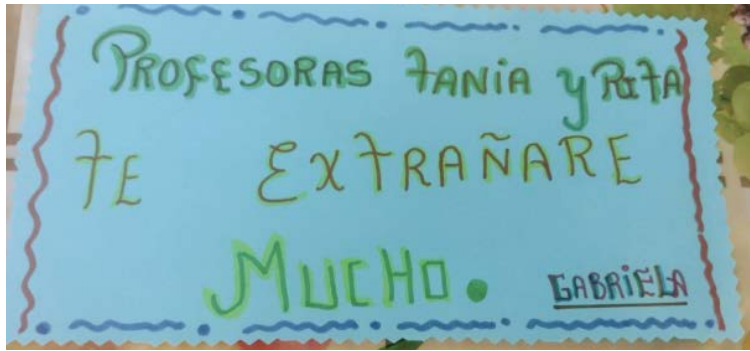 PROFESORAS TANIA Y RITA
TE EXTRAÑARE
MUCHO.
GABRIELA